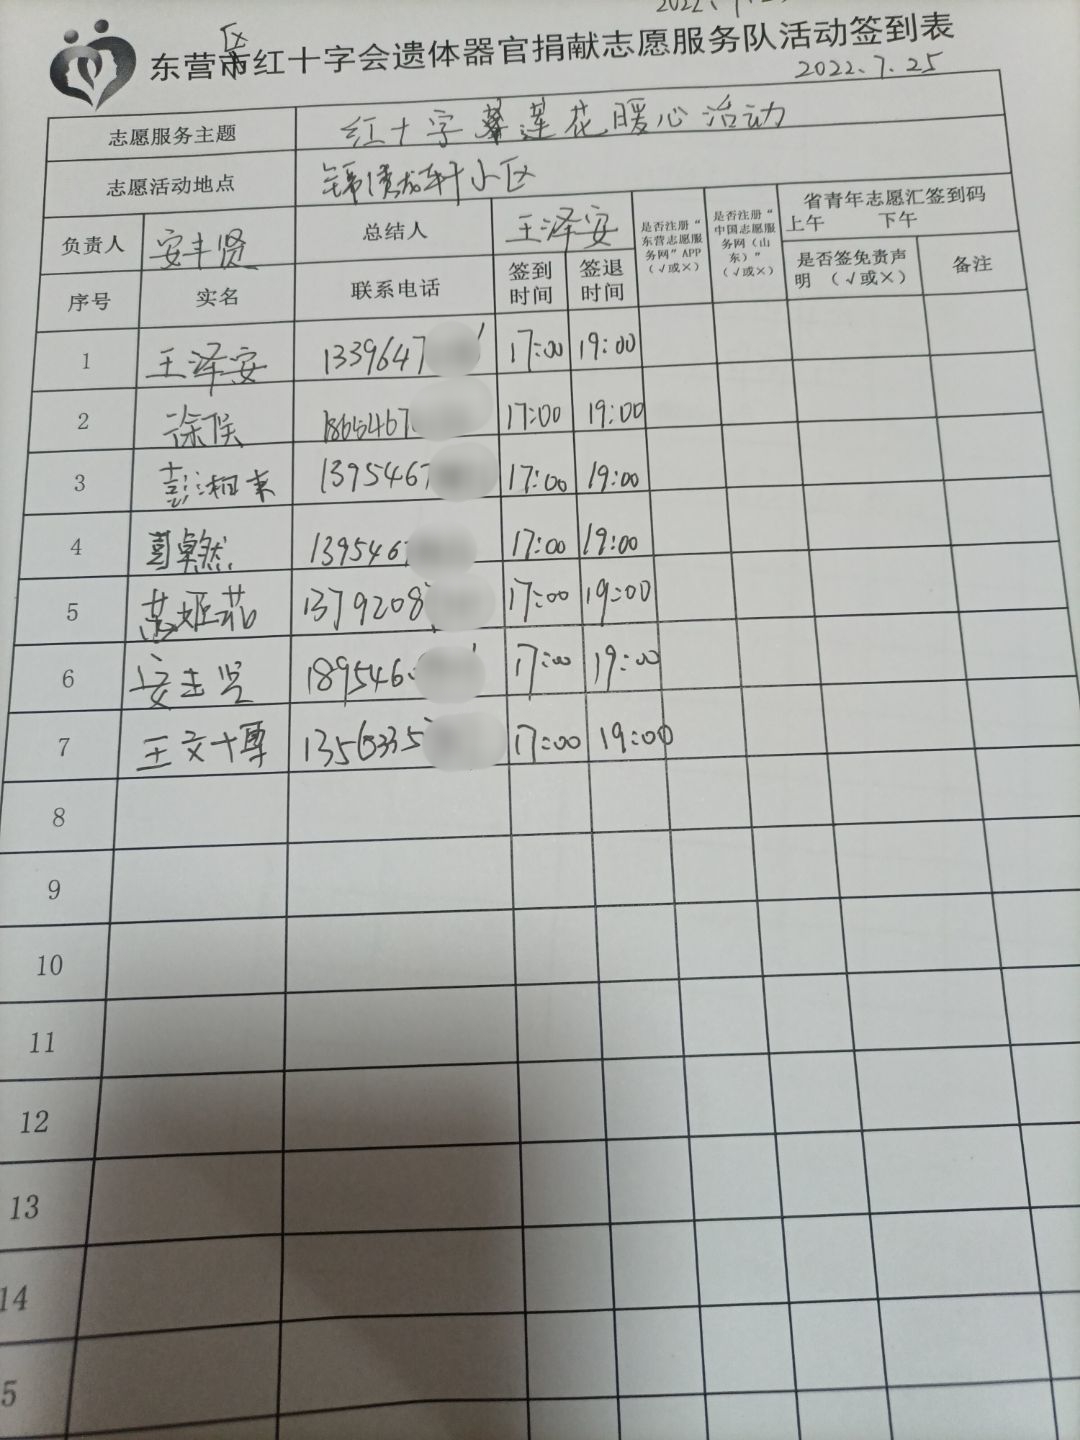 2022.7.25
区
东营市红十字会遗体器官捐献志愿服务队活动签到表
2022.7.25
志愿服务主题 红十字 莲花暖心活动
志愿活动地点 小区
负责人 安丰贤 总结人 王泽安
是否注册“东营志愿服务网”APP（√或×）
是否注册“中国志愿服务网（山东）”（√或×）
省青年志愿汇签到码
上午 下午
序号 实名 联系电话 签到时间 签退时间 是否签免责声明（√或×） 备注
1 王泽安 1339647 17:00 19:00
2 徐侯 1865467 17:00 19:00
3 彭湘来 1395467 17:00 19:00
4 139546 17:00 19:00
5 1379208 17:00 19:00
6 安丰贤 1895460 17:00 19:00
7 王文博 1356335 17:00 19:00
8
9
10
11
12
13
14
5